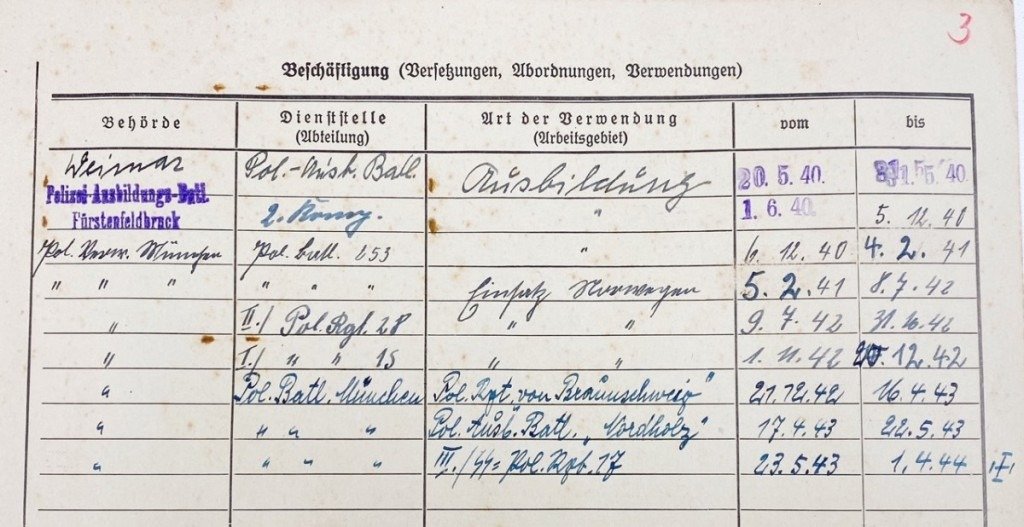 3
Beschäftigung (Versetzungen, Abordnungen, Verwendungen)
Behörde Dienststelle (Abteilung) Art der Verwendung (Arbeitsgebiet) vom bis
Weimar Pol.-Ausb. Batl. Ausbildung 20. 5. 40. 31. 5. 40
Polizei-Ausbildungs-Batl. Fürstenfeldbruck 2. Komp. " 1. 6. 40. 5. 12. 40
Pol. Verw. München Pol. batl. 253 " 6. 12. 40 4. 2. 41
" " " " " " Einsatz Norwegen 5. 2. 41 8. 7. 42
" II./ Pol. Rgt. 28 " " 9. 7. 42 31. 10. 42
" I./ " " 15 " " 1. 11. 42 20. 12. 42
" Pol. Batl. München Pol. Rgt. von Braunschweig" 21. 12. 42 16. 4. 43
" " " " Pol. Ausb. Batl. „Nordholz" 17. 4. 43 22. 5. 43
" " " " III./SS= Pol. Rgt. 17 23. 5. 43 1. 4. 44